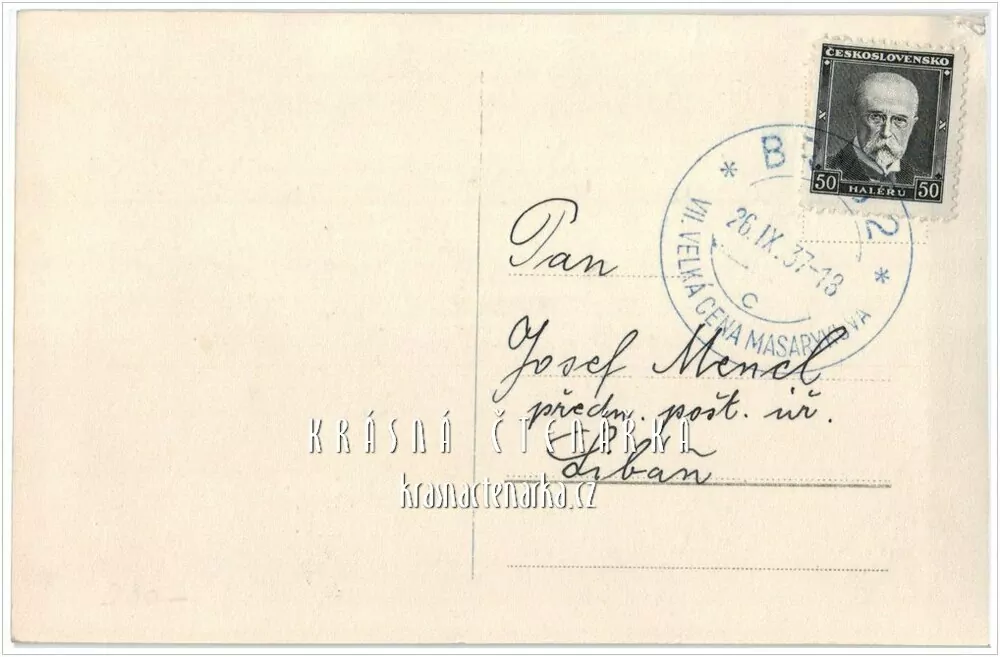 ČESKOSLOVENSKO
50 HALÉRŮ 50
BRNO 2
26.IX.37-18
C
VII. VELKÁ CENA MASARYKOVA
Pan
Josef Mencl
předn. pošt. úř.
Libáň
KRÁSNÁ ČTENÁRKA
krasnactenarka.cz